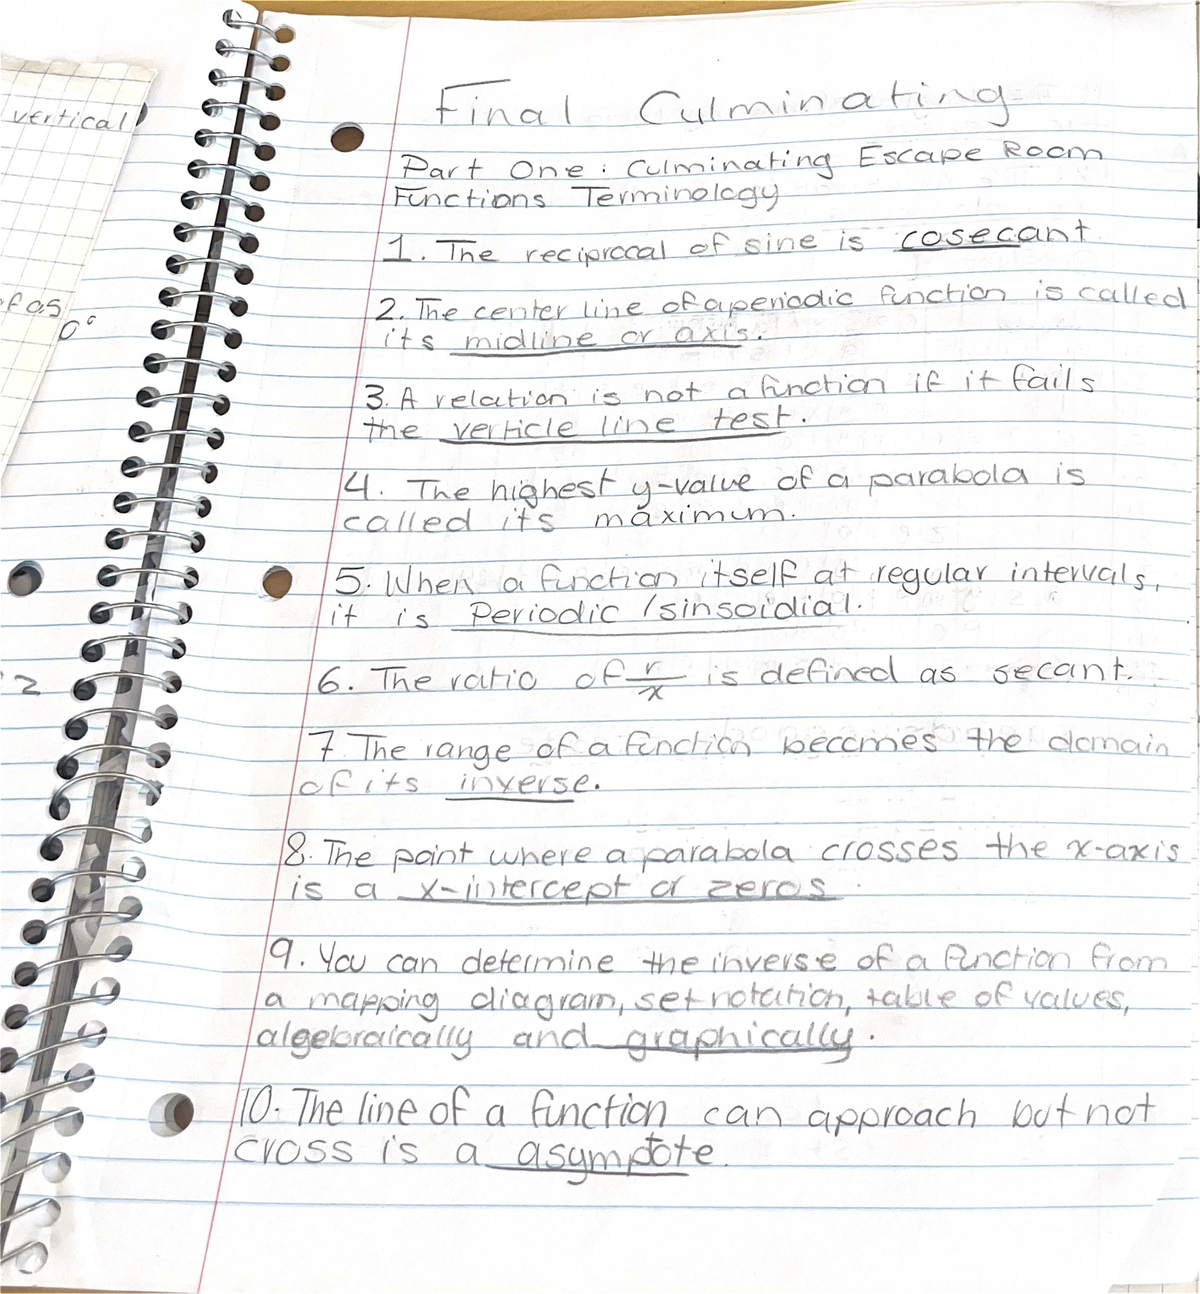 vertical
fas
0°
2
Final Culminating
Part One: Culminating Escape Room
Functions Terminology
1. The reciprocal of sine is cosecant
2. The center line of a periodic function is called
its midline or axis.
3. A relation is not a function if it fails
the verticle line test.
4. The highest y-value of a parabola is
called its maximum.
5. When a function itself at regular intervals,
it is Periodic /sinsoidial.
6. The ratio of r/x is defined as secant.
7. The range of a function becomes the domain
of its inverse.
8. The point where a parabola crosses the x-axis
is a x-intercept or zeros.
9. You can determine the inverse of a function from
a mapping diagram, set notation, table of values,
algebraically and graphically.
10. The line of a function can approach but not
cross is a asymptote.